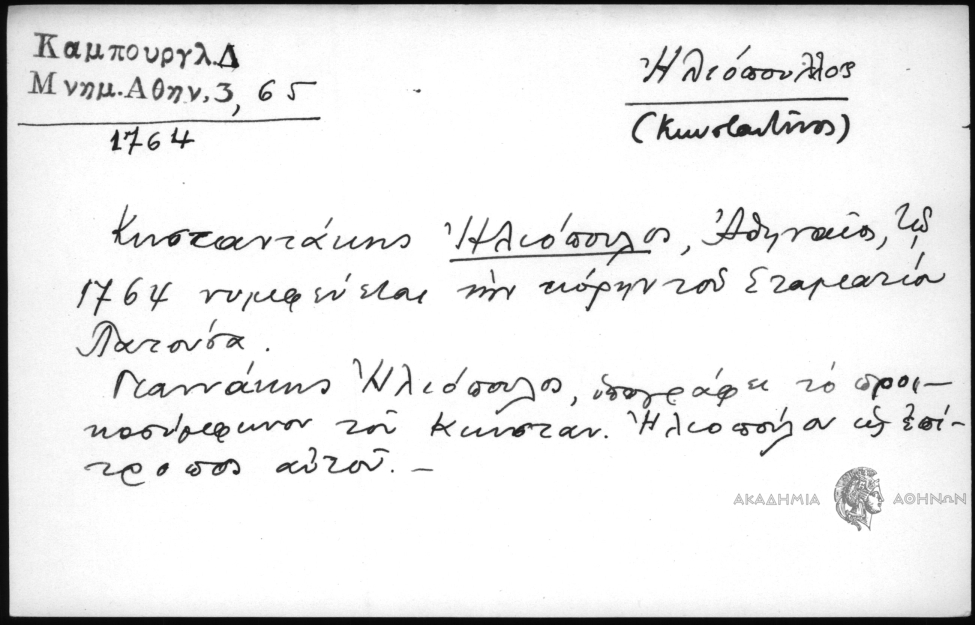 Καμπουργλ.Δ
Μνημ.Αθην.3, 65
1764
Ἠλιόπουλλος
(Κωνσταντῖνος)
Κωσταντάκης Ἠλιόπουλος, Ἀθηναῖος, τῷ
1764 νυμφεύεται τὴν κόρην τοῦ Σταματίου
Πατούσα.
Γιαννάκης Ἠλιόπουλος, ὑπογράφει τὸ προι-
κοσύμφωνον τοῦ Κωνσταν. Ἠλιοπούλου ὡς ἐπί-
τροπος αὐτοῦ. –
ΑΚΑΔΗΜΙΑ ΑΘΗΝΩΝ